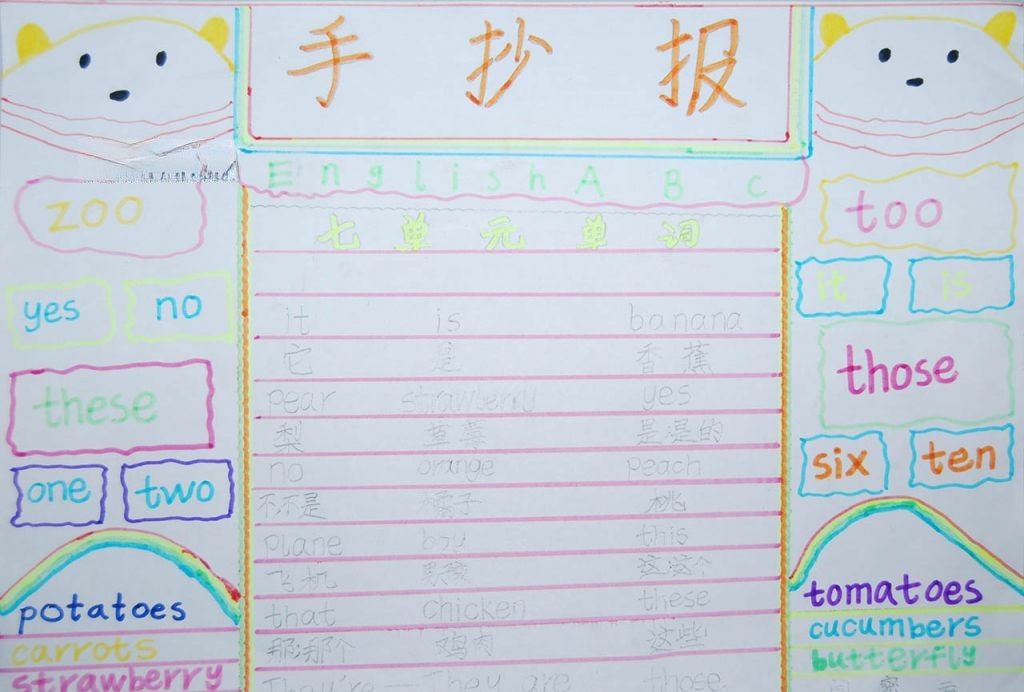 手抄报
English A B C
七单元单词
zoo
yes no
these
one two
potatoes
carrots
strawberry
it is banana
它 是 香蕉
pear strawberry yes
梨 草莓 是是的
no orange peach
不不是 橘子 桃
plane boy this
飞机 男孩 这这个
that chicken these
那那个 鸡肉 这些
They're—They are those
too
it is
those
six ten
tomatoes
cucumbers
butterfly